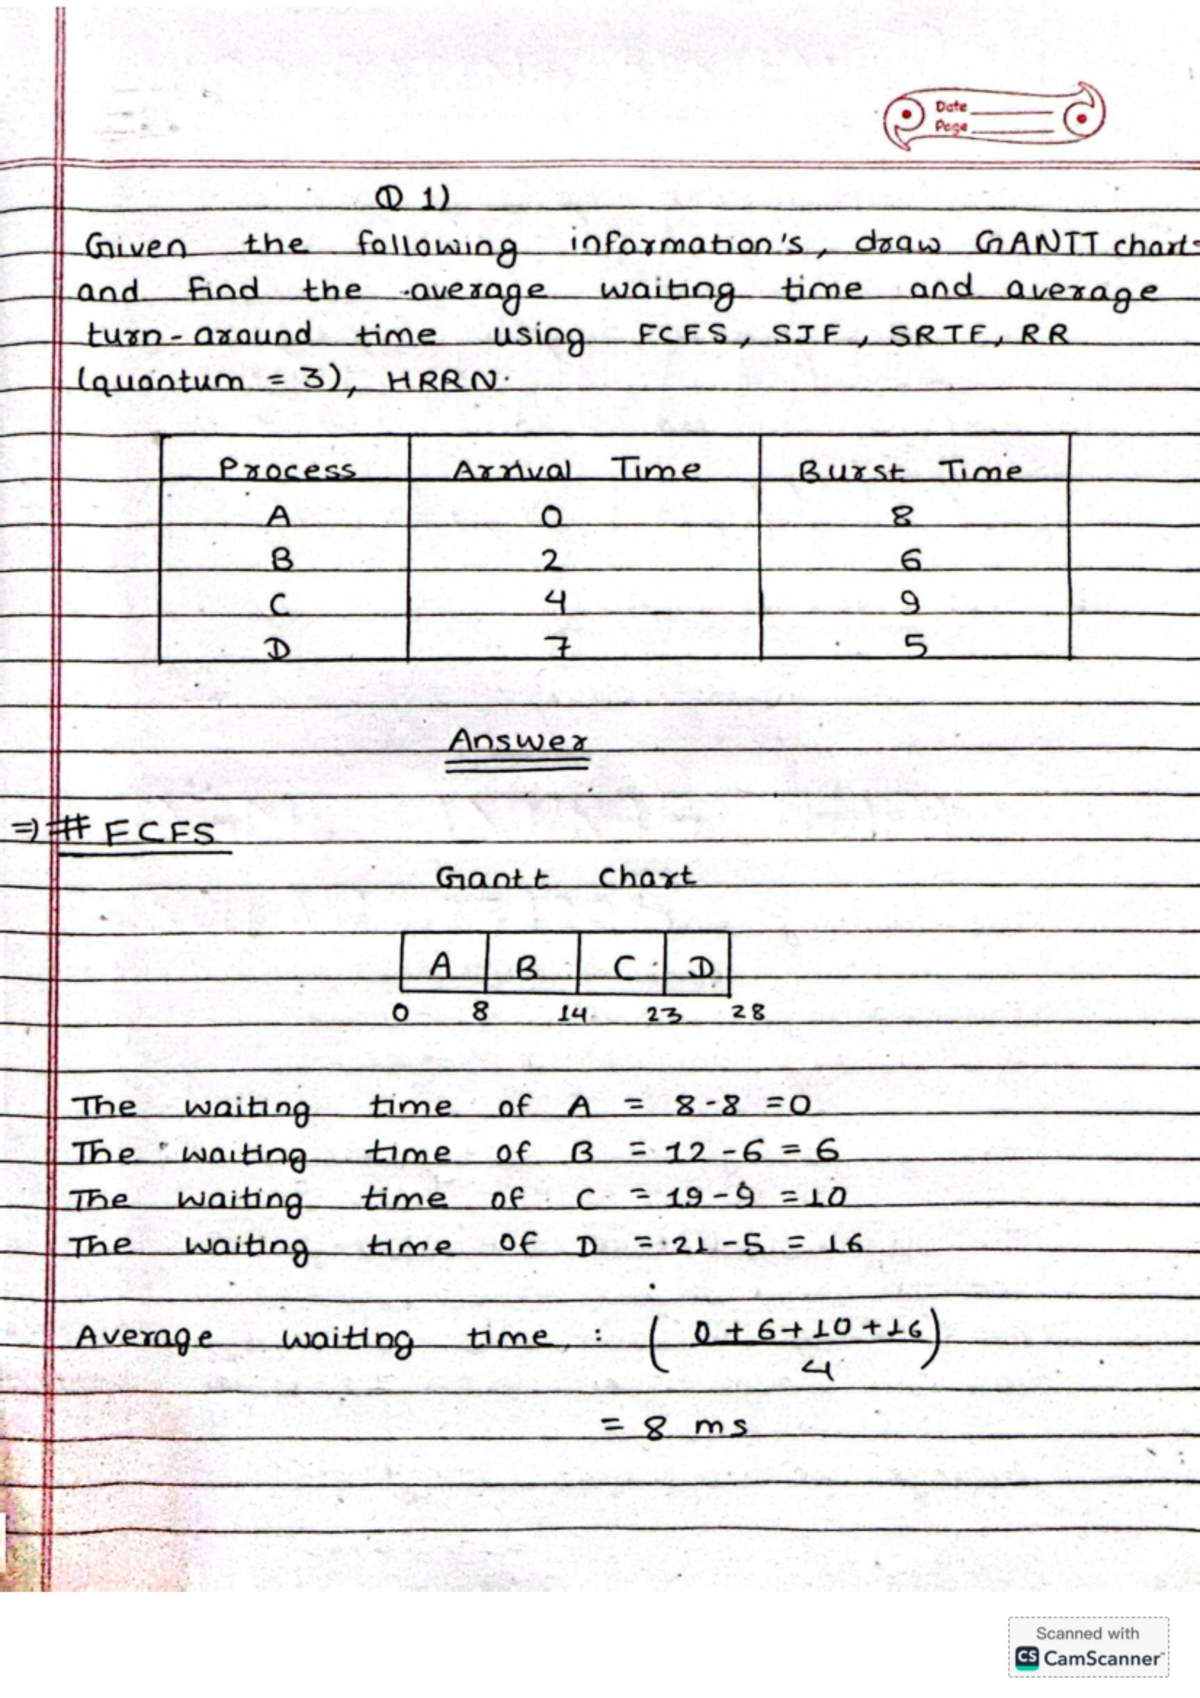 Date
Page
Q 1)
Given the following information's, draw GANTT chart
and find the average waiting time and average
turn-around time using FCFS, SJF, SRTF, RR
(quantum = 3), HRRN.
Process Arrival Time Burst Time
A 0 8
B 2 6
C 4 9
D 7 5
Answer
⇒ # FCFS
Gantt Chart
A B C D
0 8 14 23 28
The waiting time of A = 8-8 = 0
The waiting time of B = 12-6 = 6
The waiting time of C = 19-9 = 10
The waiting time of D = 21-5 = 16
Average waiting time : (0+6+10+16)
4
= 8 ms
Scanned with
CS CamScanner